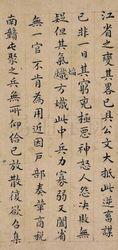 江省之變其畧已具公文大抵此逆蓄謀
已非一日其窮兇極惡神怒人怨決敗無
疑但其氣燄方熾此中兵力寡弱又闔省
無一官不肯為用近因戶部奏革商稅
南贛屯聚之兵無所仰給已放散復欲召集